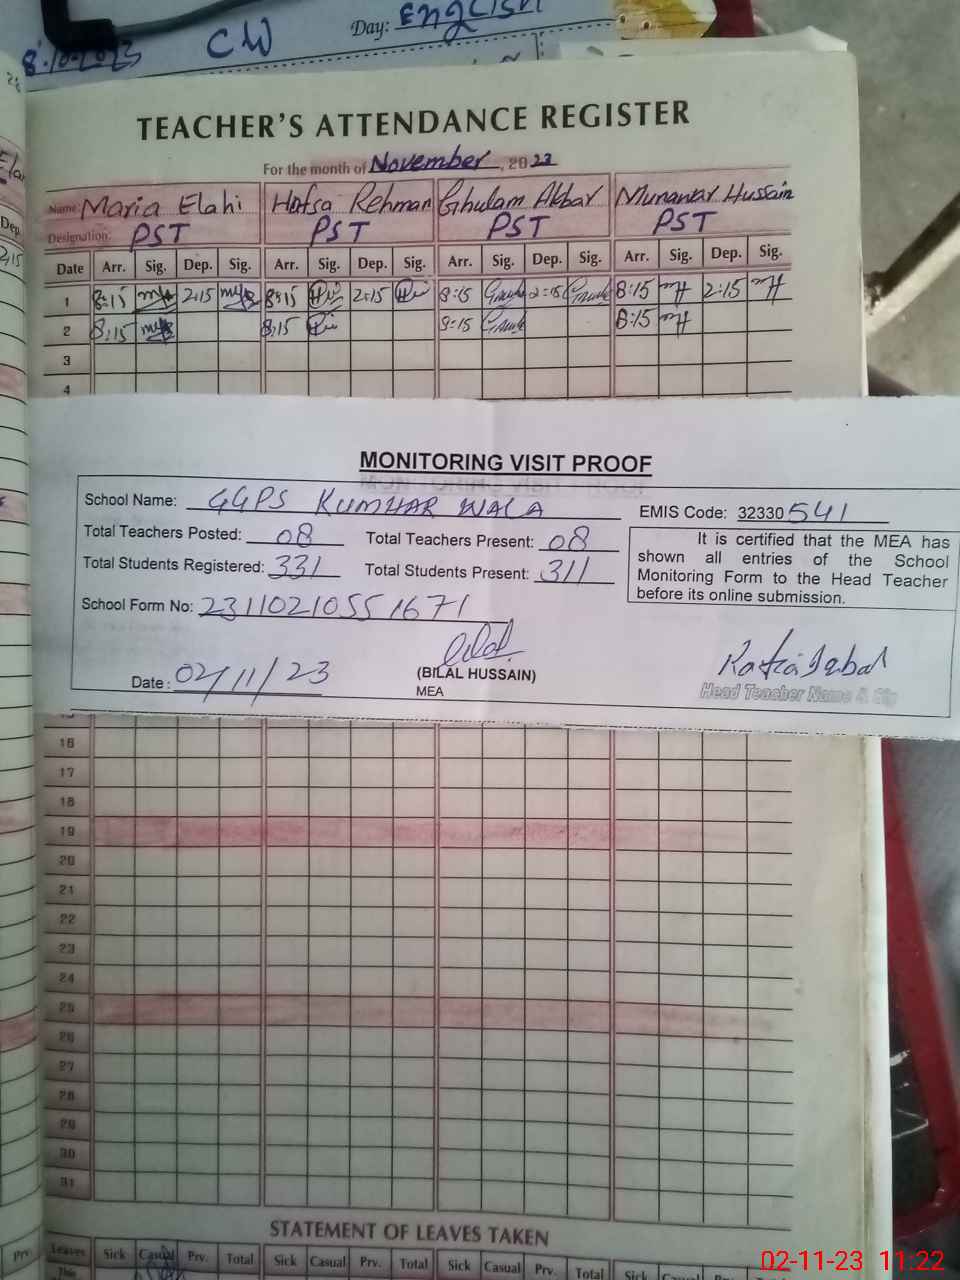 8-10-2023 CW Day: English
TEACHER'S ATTENDANCE REGISTER
For the month of November, 2023
Name Maria Elahi Hafsa Rehman Ghulam Akbar Munawar Hussain
Designation: PST PST PST PST
Date Arr. Sig. Dep. Sig. Arr. Sig. Dep. Sig. Arr. Sig. Dep. Sig. Arr. Sig. Dep. Sig.
1 8:15 2:15 8:15 2:15 8:15 2:15 8:15 2:15
2 8:15 8:15 8:15 8:15
3
4
MONITORING VISIT PROOF
School Name: GGPS KUMHAR WALA EMIS Code: 32330541
Total Teachers Posted: 08 Total Teachers Present: 08
Total Students Registered: 331 Total Students Present: 311
It is certified that the MEA has
shown all entries of the School
Monitoring Form to the Head Teacher
before its online submission.
School Form No: 23110210551671
Date: 02/11/23 (BILAL HUSSAIN)
MEA
Head Teacher Name &
16
17
18
19
20
21
22
23
24
25
26
27
28
29
30
31
STATEMENT OF LEAVES TAKEN
Leaves Sick Casual Prv. Total Sick Casual Prv. Total Sick Casual Prv. Total Sick Casual Prv. Total
This
02-11-23 11:22